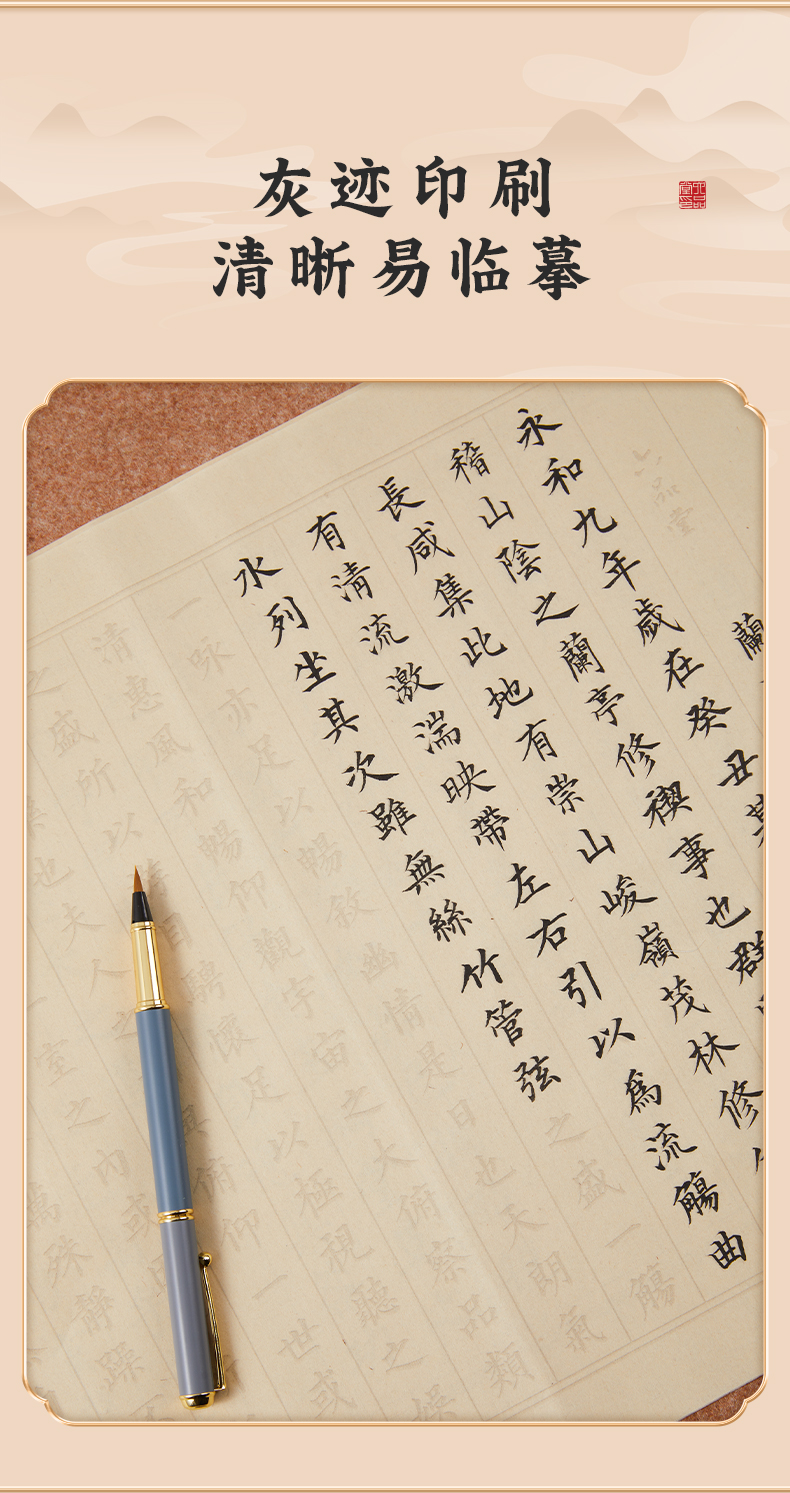 灰迹印刷
清晰易临摹
六品堂印
六品堂
蘭
永和九年歲在癸丑
稽山陰之蘭亭修禊事也群
長咸集此地有崇山峻嶺茂林修
有清流激湍映帶左右引以為流觴曲
水列坐其次雖無絲竹管弦之盛一觴
一詠亦足以暢敘幽情是日也天朗氣
清惠風和暢仰觀宇宙之大俯察品類
之盛所以目騁懷足以極視聽之娛
也夫人之俯仰一世或
一室之內或
萬殊靜躁不